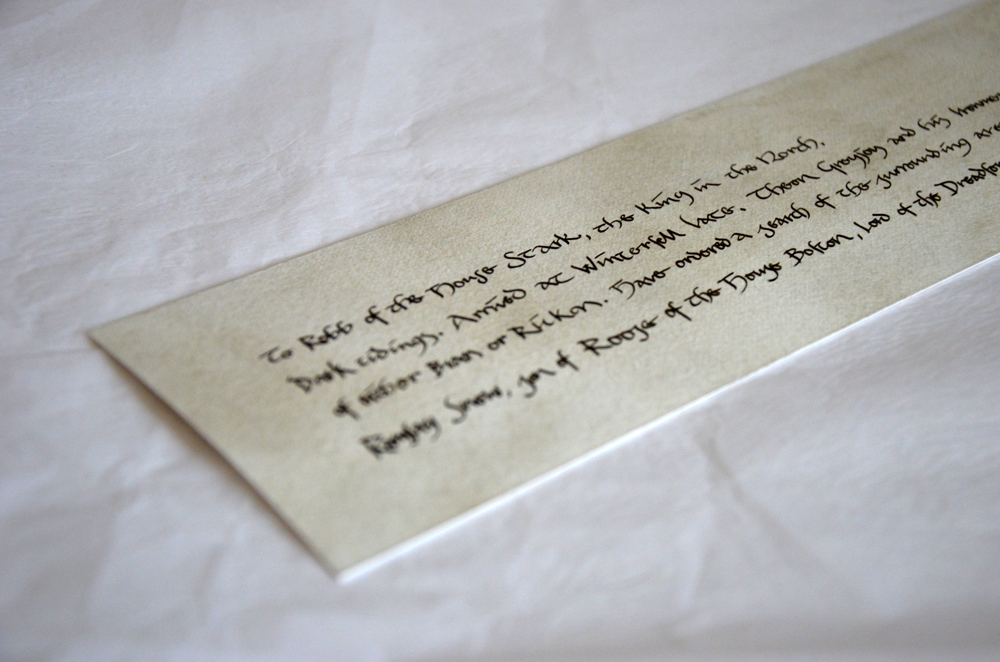 To Robb of the House Stark, the King in the North.
Dark tidings. Arrived at Winterfell late. Theon Greyjoy and his
of neither Bran or Rickon. Have ordered a search of the surrounding
Ramsay Snow, son of Roose of the House Bolton, Lord of the